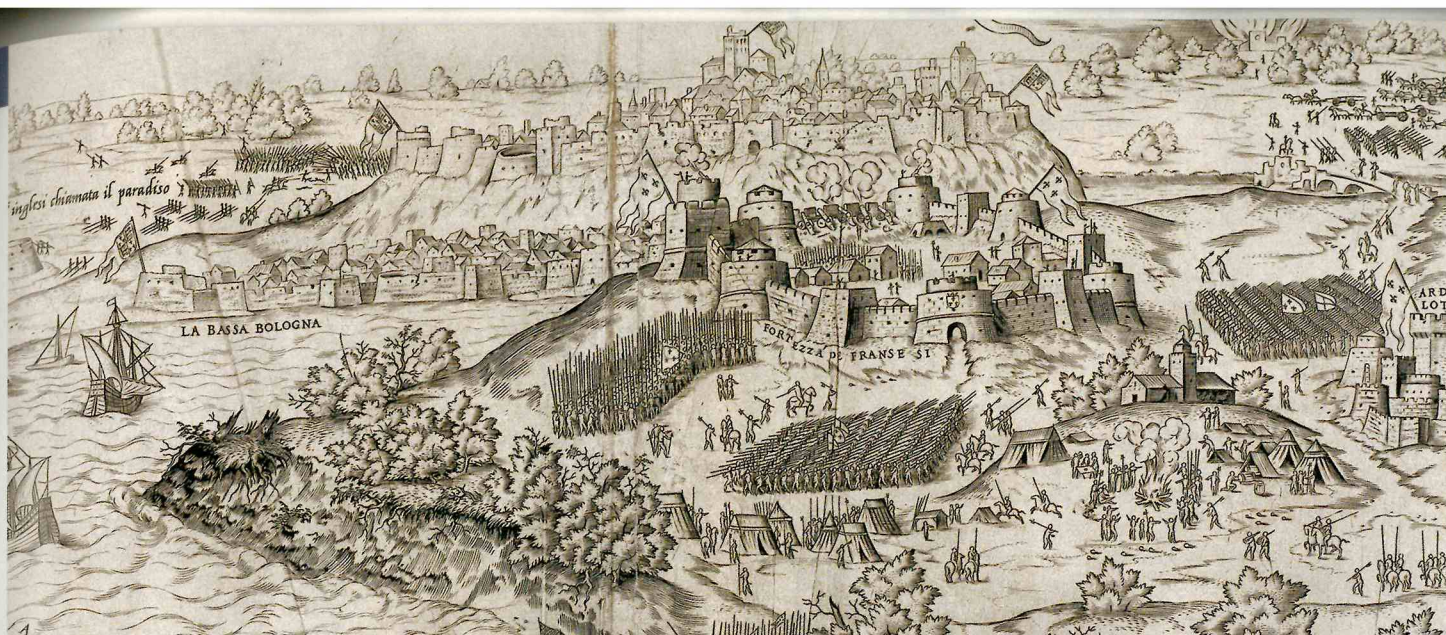 inglesi chiamata il paradiso
LA BASSA BOLOGNA
FORTEZZA DE FRANSE SI
ARD
LOT